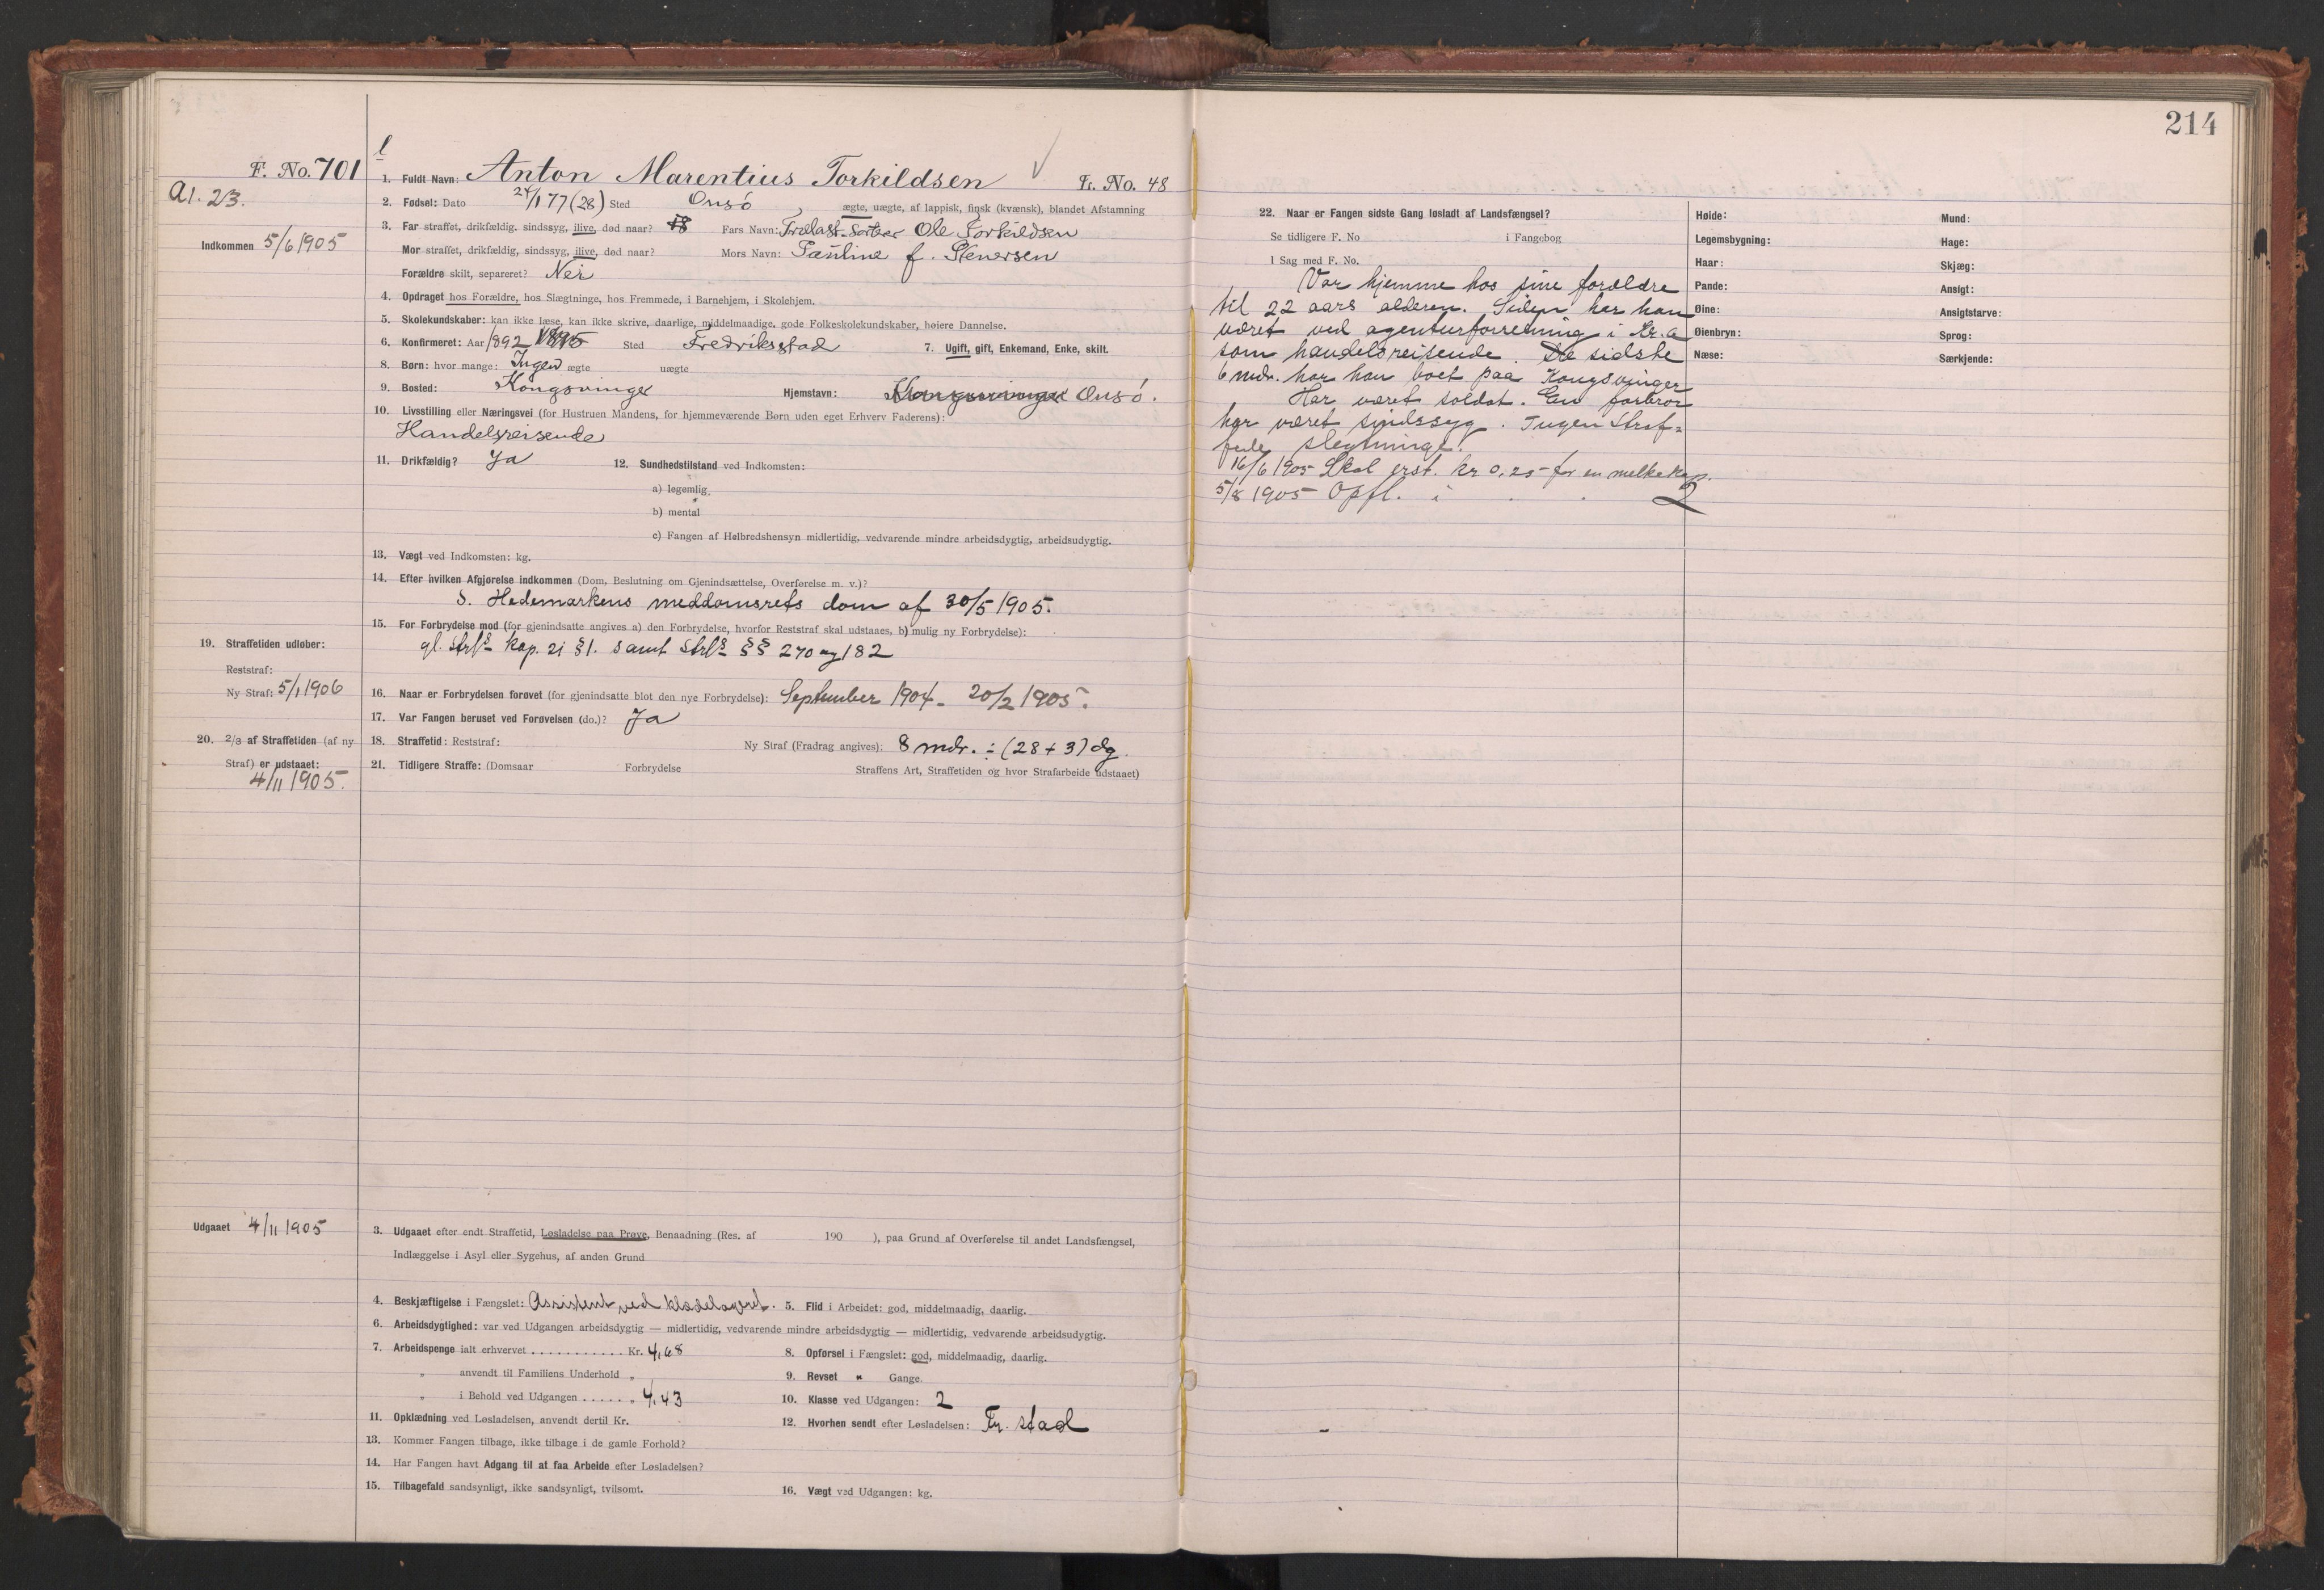 F. No. 701
A1. 23.
Indkommen 5/6 1905
1. Fuldt Navn: Anton Marentius Torkildsen L. No. 48
2. Fødsel: Dato 24/1 77 (28) Sted Onsö, ægte, uægte, af lappisk, finsk (kvænsk), blandet Afstamning
3. Far straffet, drikfældig, sindssyg, ilive, død naar? Fars Navn: Trælast-Sorterer Ole Torkildsen
Mor straffet, drikfældig, sindssyg, ilive, død naar? Mors Navn: Pauline f. Stenersen
Forældre skilt, separeret? Nei
4. Opdraget hos Forældre, hos Slægtninge, hos Fremmede, i Barnehjem, i Skolehjem.
5. Skolekundskaber: kan ikke læse, kan ikke skrive, daarlige, middelmaadige, gode Folkeskolekundskaber, høiere Dannelse.
6. Konfirmeret: Aar 1892 Sted Fredriksstad 7. Ugift, gift, Enkemand, Enke, skilt.
8. Børn: hvor mange: Ingen ægte uægte
9. Bosted: Kongsvinger Hjemstavn: Kongsvinger Onsö.
10. Livsstilling eller Næringsvei (for Hustruen Mandens, for hjemmeværende Børn uden eget Erhverv Faderens):
Handelsreisende
11. Drikfældig? Ja 12. Sundhedstilstand ved Indkomsten:
a) legemlig
b) mental
c) Fangen af Helbredshensyn midlertidig, vedvarende mindre arbeidsdygtig, arbeidsudygtig.
13. Vægt ved Indkomsten: kg.
14. Efter hvilken Afgjørelse indkommen (Dom, Beslutning om Gjenindsættelse, Overførelse m. v.)?
S. Hedemarkens meddomsrets dom af 30/5 1905.
15. For Forbrydelse mod (for gjenindsatte angives a) den Forbrydelse, hvorfor Reststraf skal udstaaes, b) mulig ny Forbrydelse):
gl. Strfl. kap. 21 § 1. samt Strfl. §§ 270 og 182
19. Straffetiden udløber:
Reststraf:
Ny Straf: 5/1 1906
16. Naar er Forbrydelsen forøvet (for gjenindsatte blot den nye Forbrydelse): September 1904 - 20/2 1905.
17. Var Fangen beruset ved Forøvelsen (do.)? Ja
20. 2/3 af Straffetiden (af ny Straf) er udstaaet:
4/11 1905.
18. Straffetid: Reststraf: Ny Straf (Fradrag angives): 8 mdr. ÷ (28 + 3) dg.
21. Tidligere Straffe: (Domsaar Forbrydelse Straffens Art, Straffetiden og hvor Strafarbeide udstaaet)
Udgaaet 4/11 1905
3. Udgaaet efter endt Straffetid, Løsladelse paa Prøve, Benaadning (Res. af 190 ), paa Grund af Overførelse til andet Landsfængsel,
Indlæggelse i Asyl eller Sygehus, af anden Grund
4. Beskjæftigelse i Fængslet: Assistent ved klædelageret. 5. Flid i Arbeidet: god, middelmaadig, daarlig.
6. Arbeidsdygtighed: var ved Udgangen arbeidsdygtig — midlertidig, vedvarende mindre arbeidsdygtig — midlertidig, vedvarende arbeidsudygtig.
7. Arbeidspenge ialt erhvervet . . . . . . . . . . . . Kr. 4,68 8. Opførsel i Fængslet: god, middelmaadig, daarlig.
„ anvendt til Familiens Underhold „ 9. Revset " Gange.
„ i Behold ved Udgangen . . . . . „ 4,43 10. Klasse ved Udgangen: 2
11. Opklædning ved Løsladelsen, anvendt dertil Kr. 12. Hvorhen sendt efter Løsladelsen: Fr. stad
13. Kommer Fangen tilbage, ikke tilbage i de gamle Forhold?
14. Har Fangen havt Adgang til at faa Arbeide efter Løsladelsen?
15. Tilbagefald sandsynligt, ikke sandsynligt, tvilsomt. 16. Vægt ved Udgangen: kg.
214
22. Naar er Fangen sidste Gang løsladt af Landsfængsel?
Se tidligere F. No i Fangebog
I Sag med F. No.
Var hjemme hos sine forældre
til 22 aars alderen. Siden har han
været ved agenturforretning i Kr.a
som handelsreisende. De sidste
6 mdr. har han boet paa Kongsvinger
Har været soldat. En farbror
har været sindssyg. Ingen straf-
fede slegtninge.
16/6 1905 Skal erst. kr 0,25 for en melkekop.
5/8 1905 Opfl. i 2
Høide:
Legemsbygning:
Haar:
Pande:
Øine:
Øienbryn:
Næse:
Mund:
Hage:
Skjæg:
Ansigt:
Ansigtsfarve:
Sprog:
Særkjende: